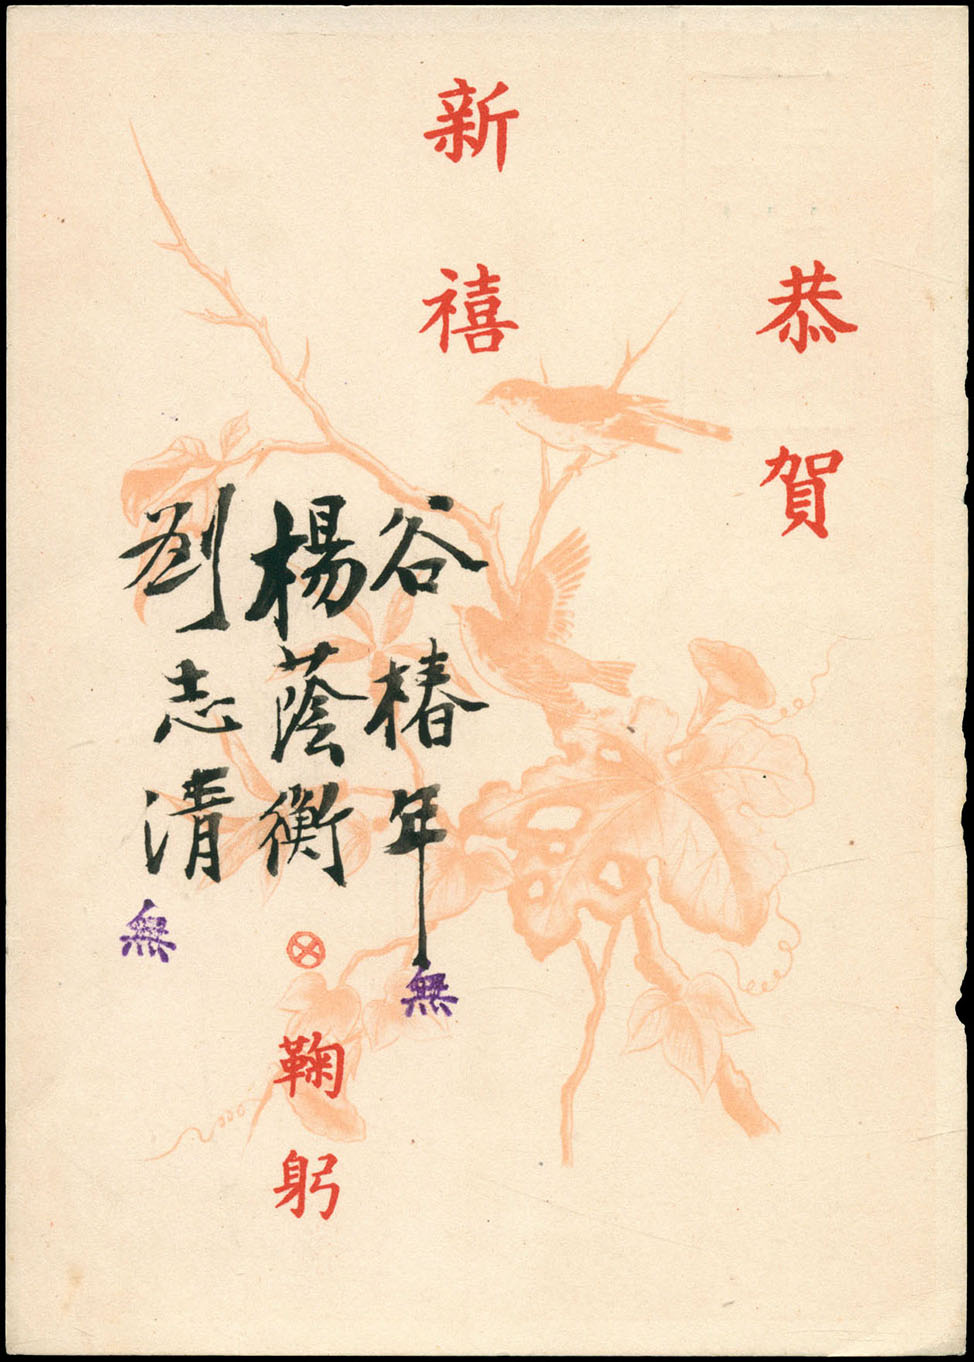 恭賀
新禧
谷椿年
無
楊蔭衡
鞠躬
劉志清
無